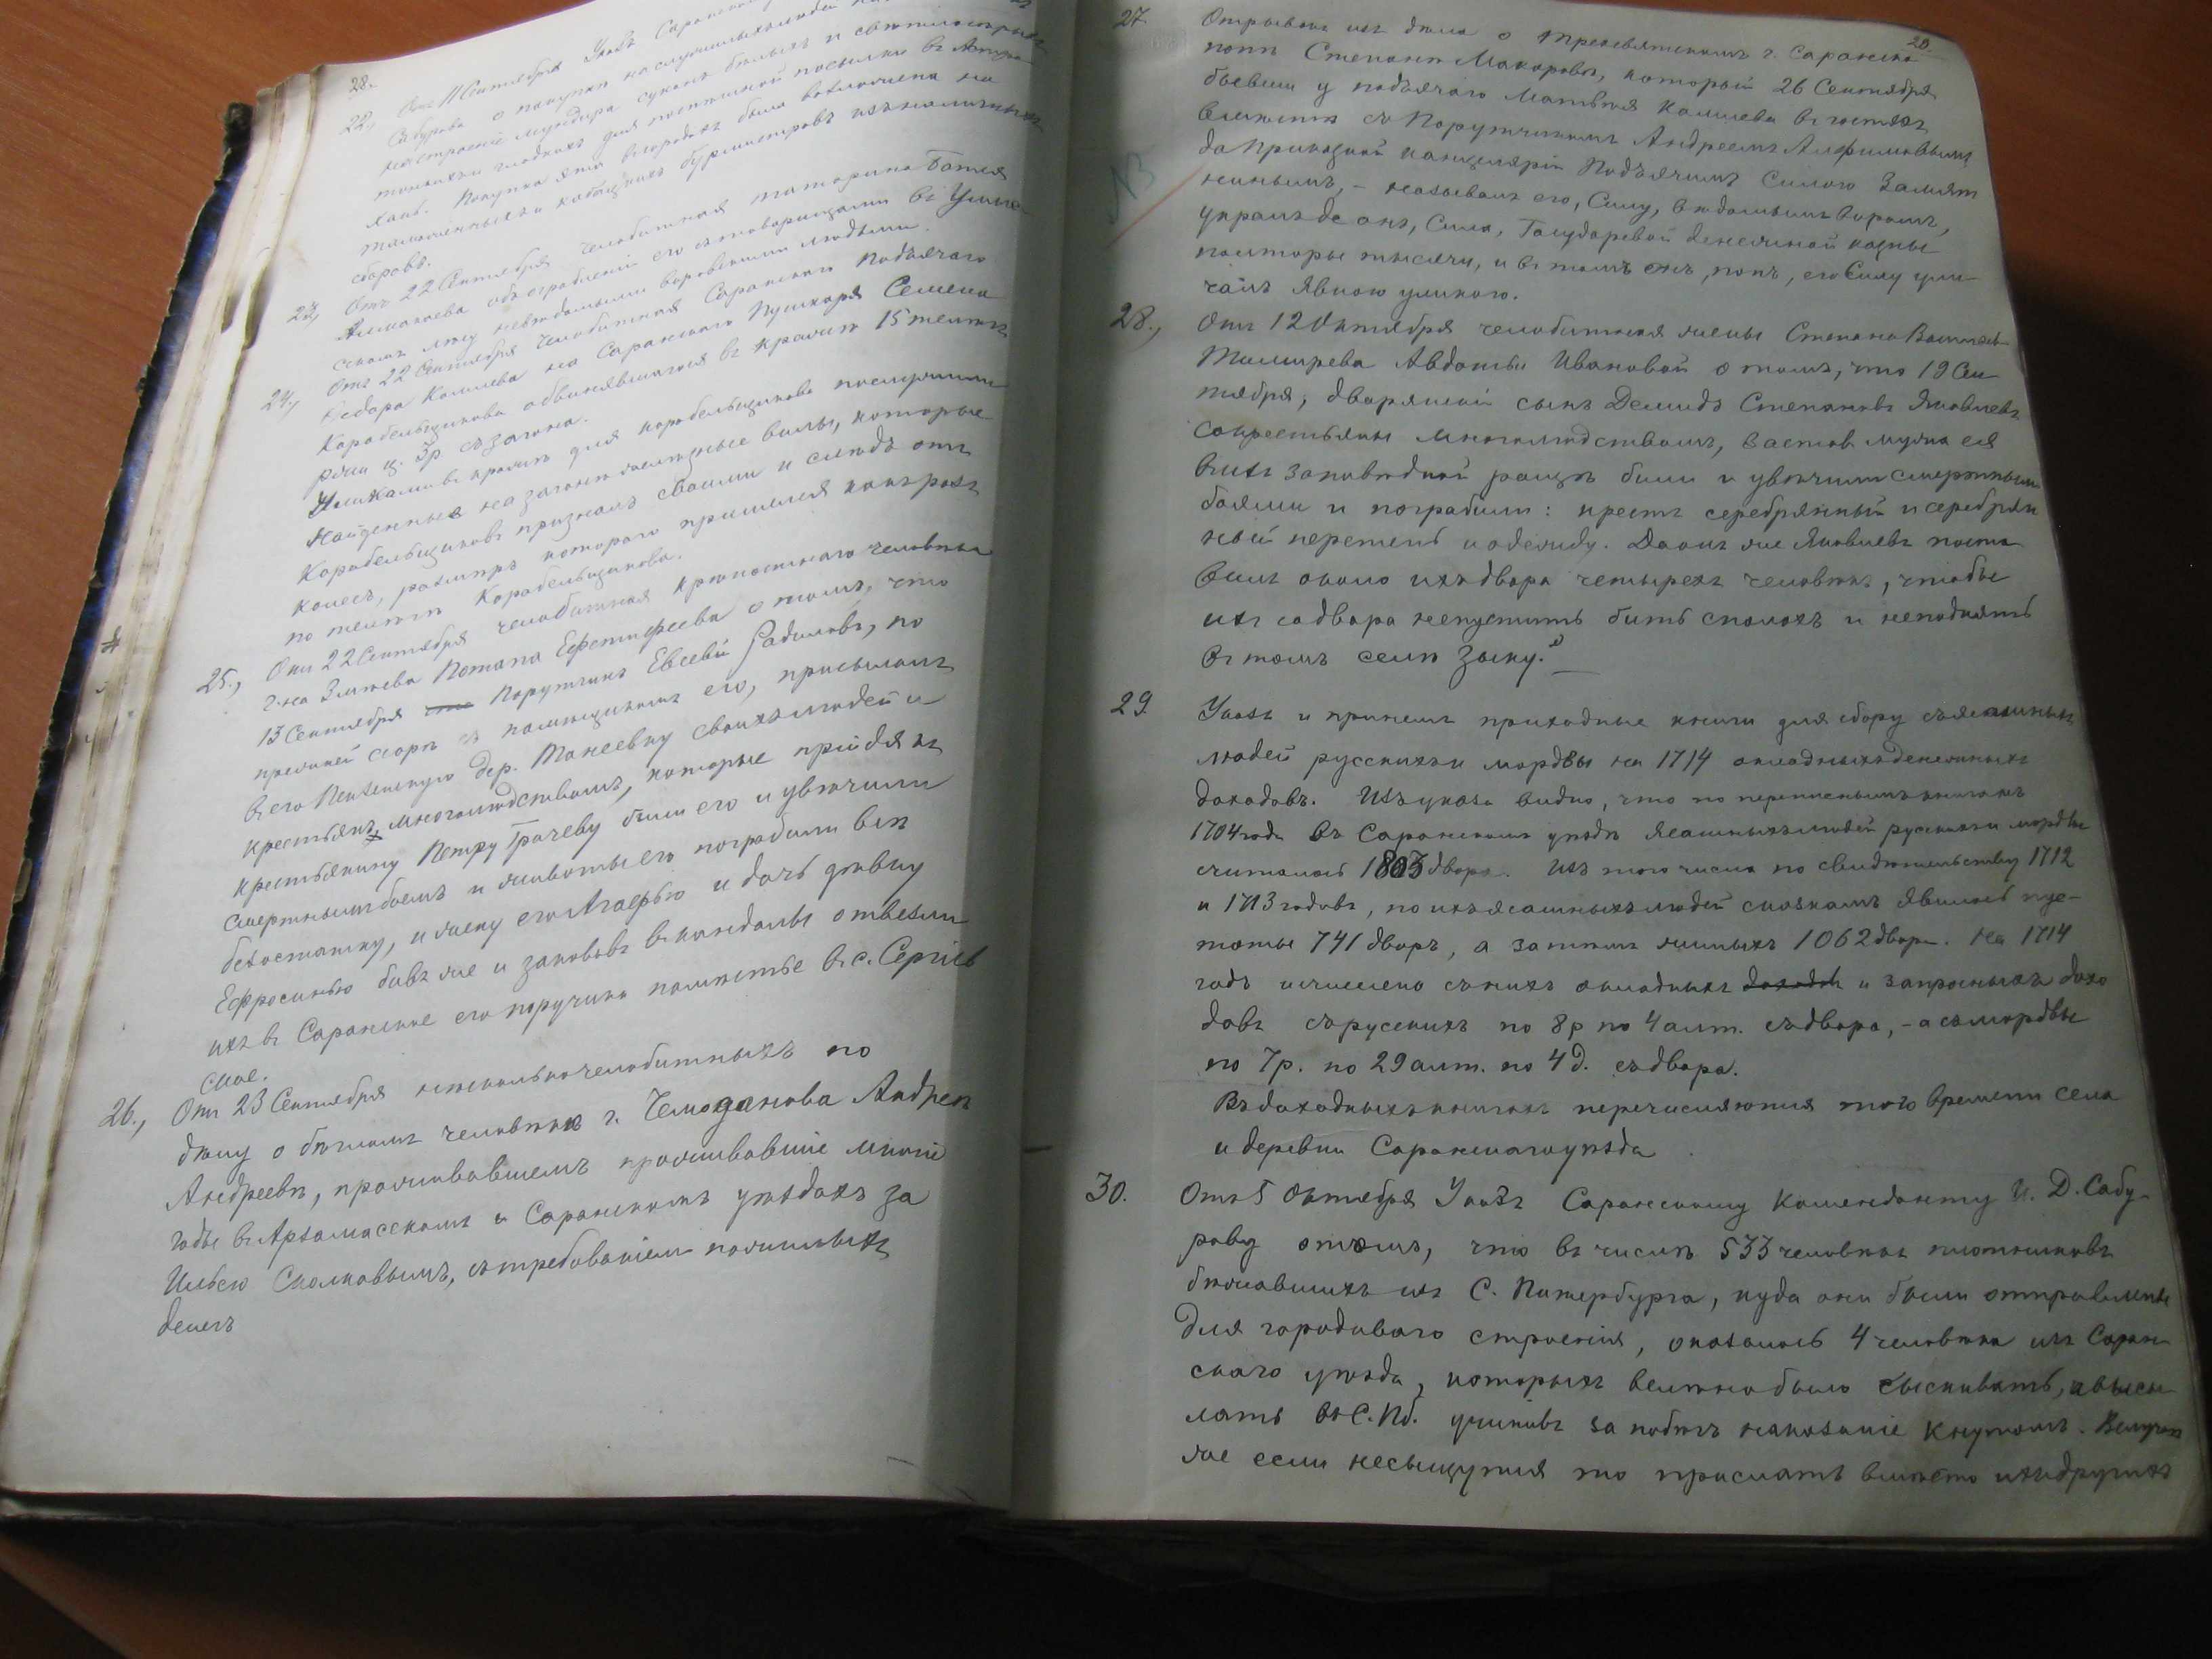 28.
22., Отъ 11 Сентября Указъ Саранскому
Сабурова о покупкѣ
на строеніе мундира суконъ бѣлыхъ и свѣтлосѣрыхъ
тонкихъ и гладкихъ для поспѣшной посылки въ Астра-
хань. Покупка эта въ городахъ была возложена на
таможенныхъ и кабацкихъ бурмистровъ изъ наличныхъ
сборовъ.
23., Отъ 22 Сентября челобитная татарина
Алмакаева объ ограбленіи его съ товарищами въ
скомъ лѣсу невѣдомыми воровскими людьми.
24., Отъ 22 Сентября челобитная Саранскаго Подъячаго
Ѳедора Камаева на Саранскаго Пушкаря Семена
Карабельщикова обвинявшагося въ кражѣ 15 телѣгъ
ржи ц. 3р. съ загона.
Уликами въ кражѣ для Корабельщикова послужили
найденныя на загонѣ желѣзные вилы, которые
Карабельщиковъ призналъ своими и слѣдъ отъ
колесъ, размѣръ котораго пришелся какъ разъ
по телѣгѣ Карабельщикова.
25., Отъ 22 Сентября челобитная крѣпостнаго человѣка
г-на Змѣева Потапа Ефстифеева о томъ, что
13 Сентября Поручикъ Евсевій Радиловъ, по
прежней сорѣ съ помѣщикомъ его, присылалъ
въ его Пензенскую дер. Макеевку своихъ людей и
крестьянъ, многолюдствомъ, которые прійдя къ
крестьянину Петру Грачеву били его и увѣчили
смертнымъ боемъ и животы его пограбили всѣ
безостатку, и жену его Агафью и дочь дѣвку
Ефросинью бивъ же и заковавъ въ кандалы отвезли
ихъ въ Саранское его поручика помѣстье въ с. Сергіев
ское.
26., Отъ 23 Сентября нѣсколько челобитныхъ по
дѣлу о бѣгломъ человѣкѣ г. Чемоданова Андреѣ
Андреевѣ, проживавшемъ проживавшіе многіе
годы въ Арзамасскомъ и Саранскомъ уѣздахъ за
Ильею Скалковымъ, съ требованіемъ пожилыхъ
денегъ
29.
27. Отрывокъ изъ дѣла о Трехсвятскомъ г. Саранска
попѣ Степанѣ Макаровѣ, который 26 Сентября
бывши у подъячаго Матвѣя Камаева въ гостяхъ
вмѣстѣ съ Поручикомъ Андреемъ Алфимовымъ
да Приказной канцеляріи Подъячимъ Силою Замят
нинымъ, – называлъ его, Силу, вѣдомымъ воромъ,
укралъ де онъ, Сила, Государевой денежной казны
полторы тысячи, и въ томъ онъ, попъ, его Силу ули-
чалъ явною уликою.
28., Отъ 12 Октября челобитная жены Степана Васильев
Тимирева Авдотьи Ивановой о томъ, что 19 Сен
тября, дворянской сынъ Демидъ Степановъ Яковлевъ
со крестьяны многолюдствомъ, заставъ мужа ея
въ ихъ заповѣдной рощѣ били и увѣчили смертными
боями и пограбили: крестъ серебрянный и серебрян
ный перстень и одежду. Да онъ же Яковлевъ поста
вилъ около ихъ двора четырехъ человѣкъ, чтобы
ихъ со двора не пустить бить сполохъ и не поднять
въ томъ селѣ зыку." —
29. Указъ и при немъ приходные книги для сбору съ ясашныхъ
людей русскихъ и мордвы на 1714 окладныхъ денежныхъ
доходовъ. Изъ указа видно, что по переписнымъ книгамъ
1704 года въ Саранскомъ уѣздѣ ясашныхъ людей русскихъ и мордвы
считалось 1803 двора. Изъ того числа по свидѣтельству 1712
и 1713 годовъ, по ихъ ясашныхъ людей сказкамъ явилось пус-
тоты 741 дворъ, а затѣмъ жилыхъ 1062 двора. На 1714
годъ исчислено съ нихъ окладныхъ доходовъ и запросныхъ дохо
довъ съ русскихъ по 8 р по 4 алт. съ двора, – а съ мордвы
по 7 р. по 29 алт. по 4 д. съ двора.
Въ доходныхъ книгахъ перечисляются того времени села
и деревни Саранскаго уѣзда.
30. Отъ 5 Октября Указъ Саранскому Коменданту И. Д. Сабу-
рову о томъ, что въ числѣ 533 человѣкъ плотниковъ
бѣжавшихъ изъ С. Питербурга, куда они были отправлены
для городоваго строенія, оказалось 4 человѣка изъ Саран-
скаго уѣзда, которыхъ велѣно было сыскивать, и высы-
лать въ С. Пб. учинивъ за побѣгъ наказаніе кнутомъ. Велѣно
же если не сыщутся то прислать вмѣсто ихъ другихъ